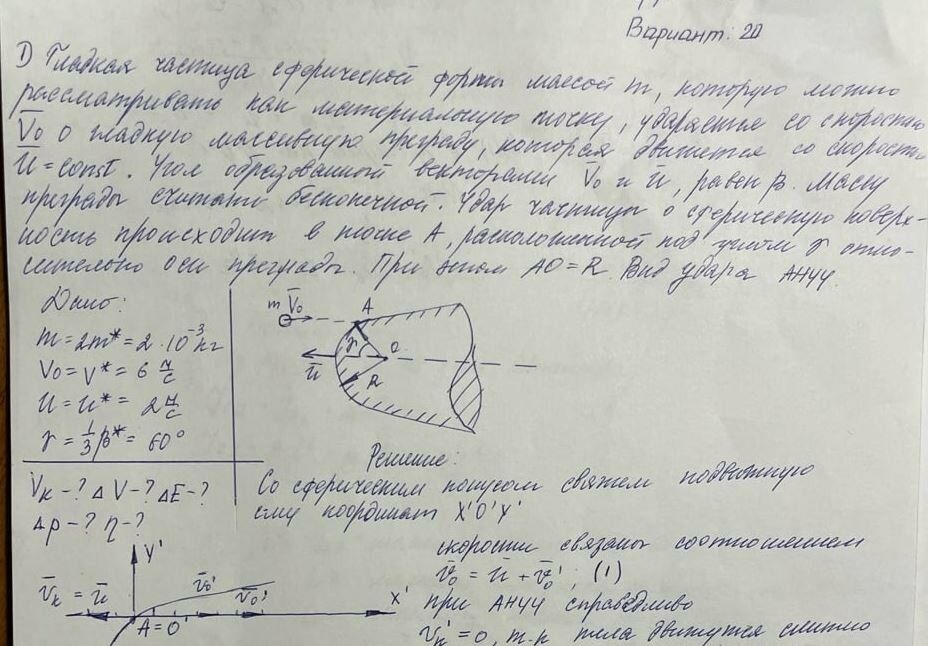 Вариант: 20
1) Гладкая частица сферической формы массой m, которую можно
рассматривать как материальную точку, ударяется со скоростью
V̄₀ о гладкую массивную преграду, которая движется со скорость
ū = const. Угол образованный векторами V̄₀ и ū, равен β. Массу
преграды считать бесконечной. Удар частицы о сферическую поверх-
ность происходит в точке A, расположенной под углом γ отно-
сительно оси преграды. При этом AO = R. Вид удара АНУУ.
Дано:
m = 2m* = 2·10⁻³ кг
V₀ = V* = 6 м/с
U = u* = 2 м/с
γ = 1/3 β* = 60°
Vк - ? ΔV - ? ΔE - ?
Δp - ? η - ?
m V̄₀ A
γ O
ū R
Решение:
Со сферическим конусом свяжем подвижную
сму координат X'O'Y'
Y'
V̄к = ū v̄₀' v̄₀' X'
A = O'
скорости связаны соотношением
v̄₀ = ū + v̄₀'; (1)
при АНУУ справедливо
v̄к' = 0, т.к тела движутся слитно